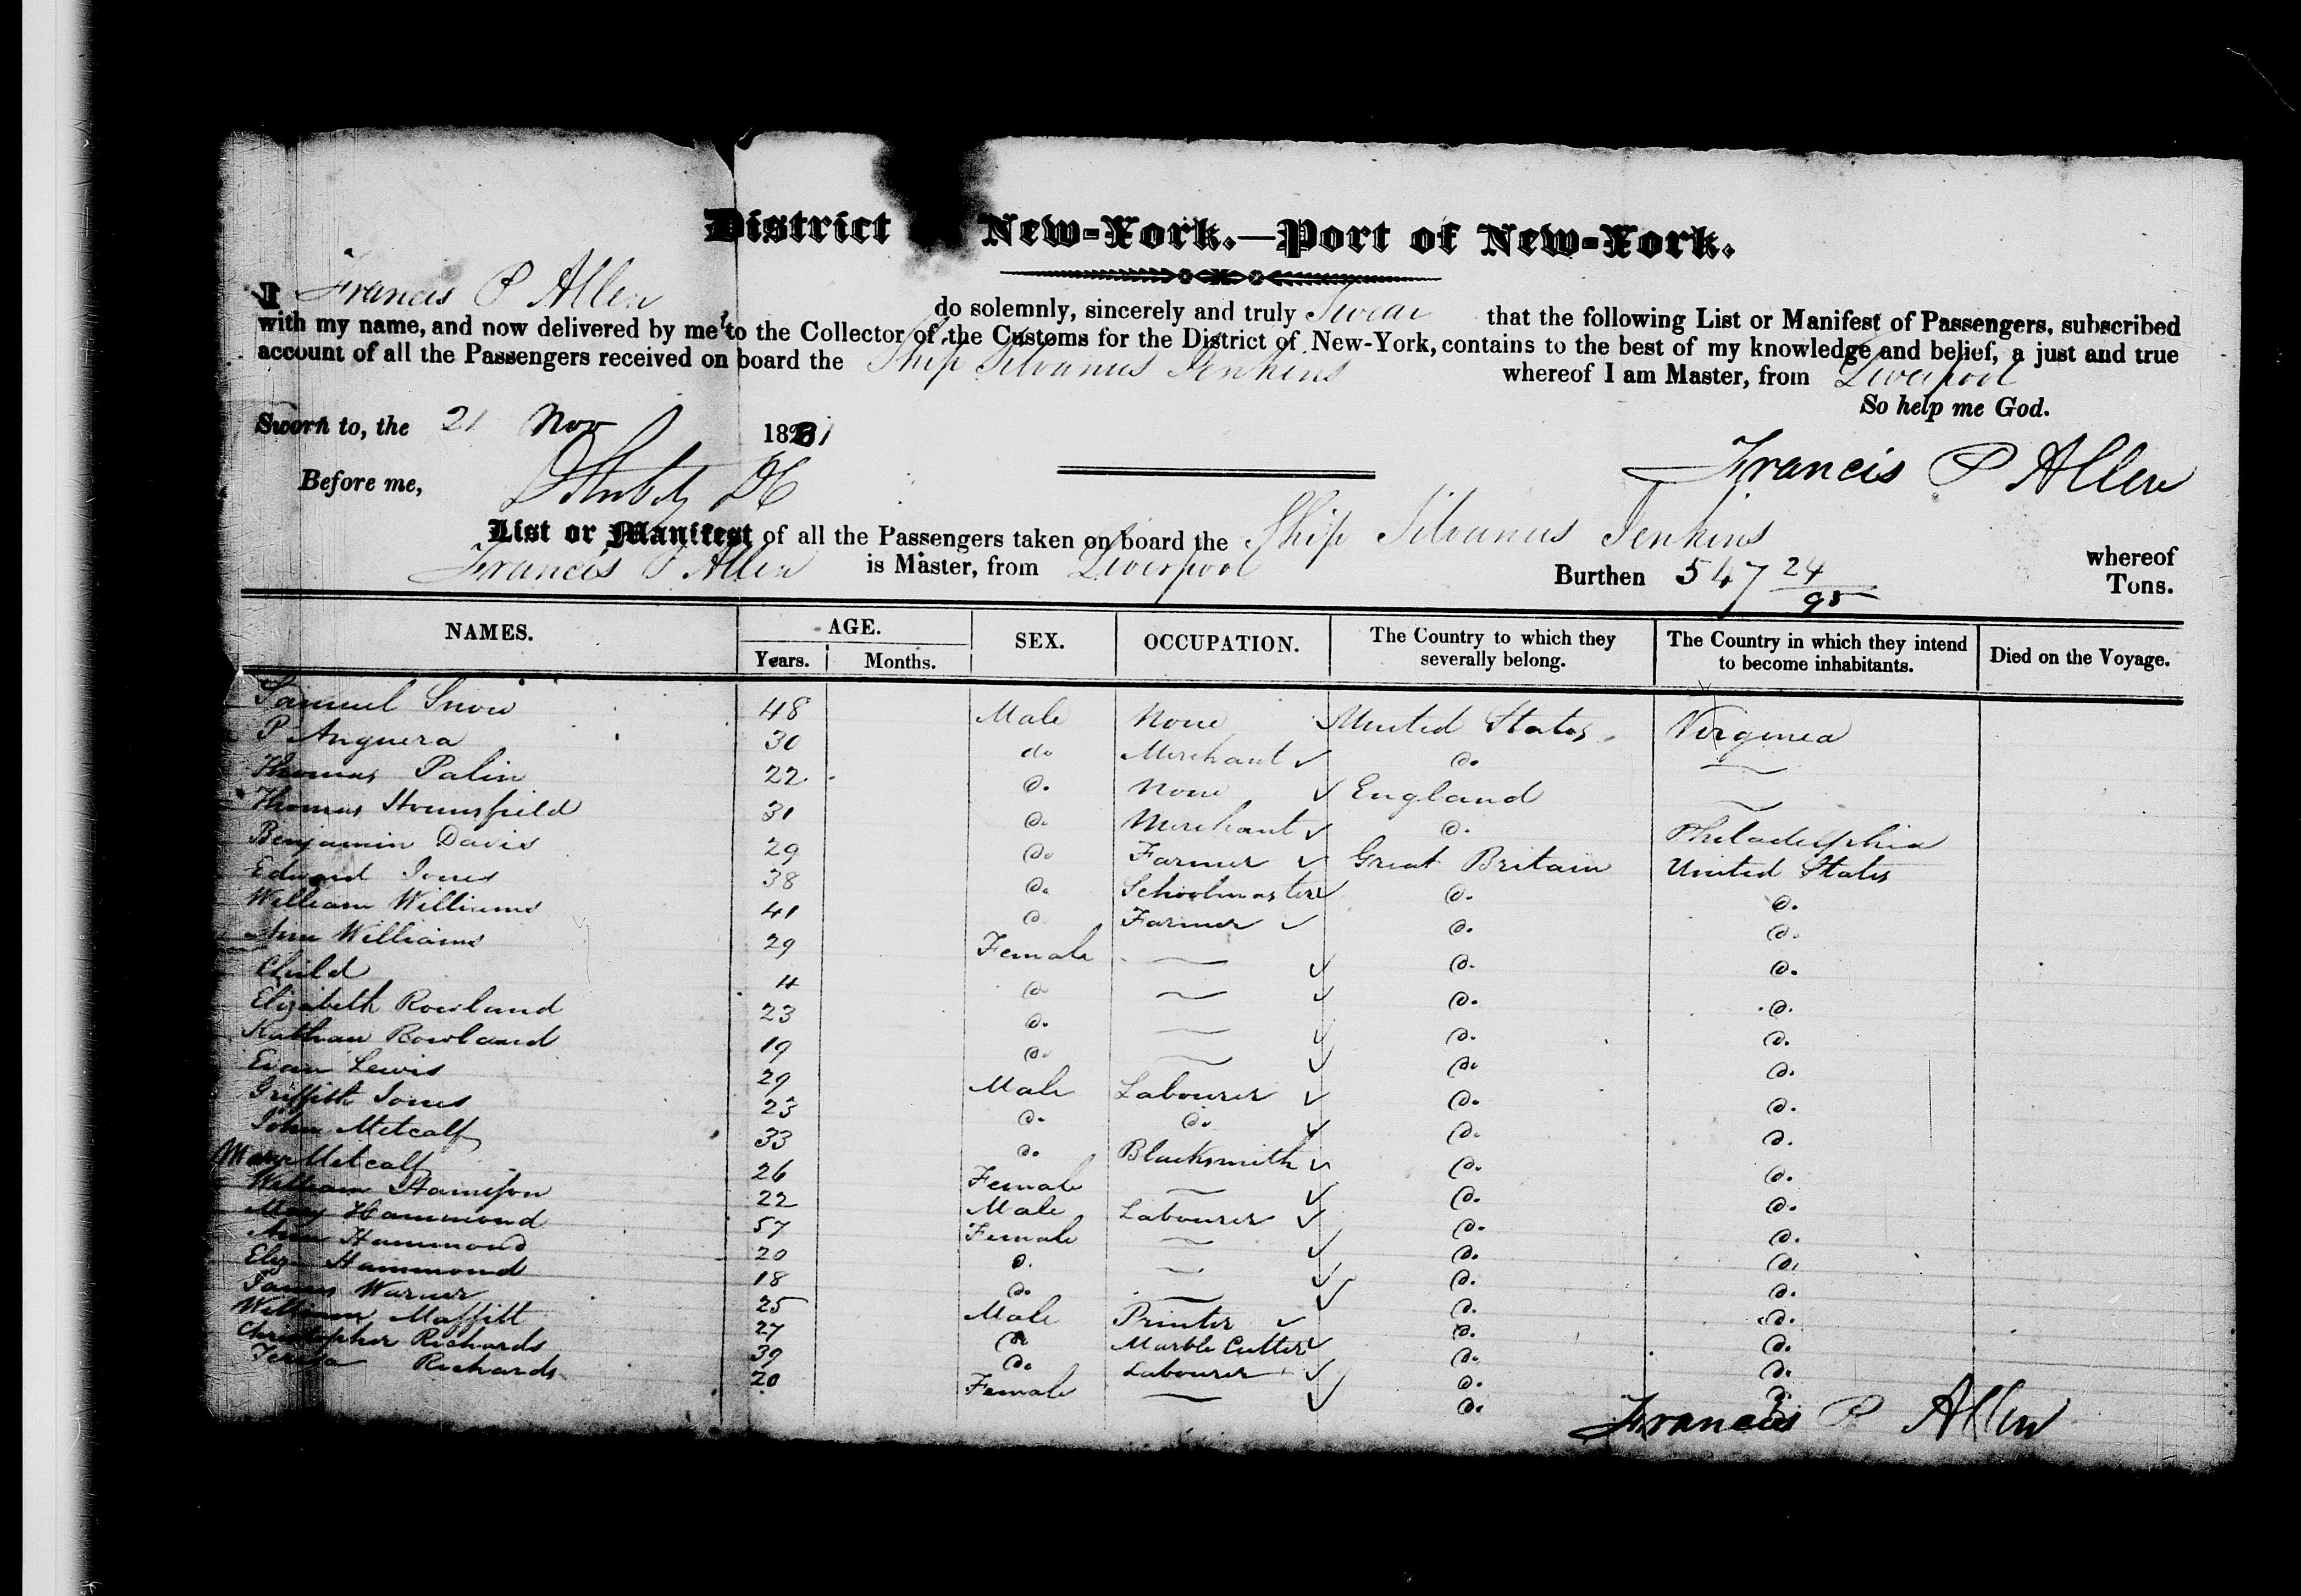 District New-York.—Port of New-York.
I Francis P Allen do solemnly, sincerely and truly Swear that the following List or Manifest of Passengers, subscribed
with my name, and now delivered by me to the Collector of the Customs for the District of New-York, contains to the best of my knowledge and belief, a just and true
account of all the Passengers received on board the Ship Silvanus Jenkins whereof I am Master, from Liverpool
So help me God.
Sworn to, the 21 Nov 1831
Francis P Allen
Before me,
List or Manifest of all the Passengers taken on board the Ship Silvanus Jenkins whereof
Francis P Allen is Master, from Liverpool Burthen 547 24/95 Tons.
NAMES. AGE. Years. Months. SEX. OCCUPATION. The Country to which they severally belong. The Country in which they intend to become inhabitants. Died on the Voyage.
Samuel Snow 48 Male None United States Virginea
P Anguera 30 do Merchant do
Thomas Palin 22 do None England
Thomas Hounsfield 31 do Merchant do Philadelphia
Benjamin Davis 29 do Farmer Great Britain United States
Edward Jones 38 do Schoolmaster do do
William Williams 41 do Farmer do do
Ann Williams 29 Female do do
Child 4 do do do
Elizabeth Rowland 23 do do do
Rowland 19 do do do
Evan Lewis 29 Male Labourer do do
Griffith Jones 23 do do do do
John Metcalf 33 do Blacksmith do do
Mary Metcalf 26 Female do do
William 22 Male Labourer do do
Mary Hammond 57 Female do do
Ann Hammond 20 do do do
Eliza Hammond 18 do do do
James Warner 25 Male Printer do do
William Moffitt 27 do Marble Cutter do do
Christopher Richards 39 do Labourer do do
Teresa Richards 20 Female do do
Francis P Allen